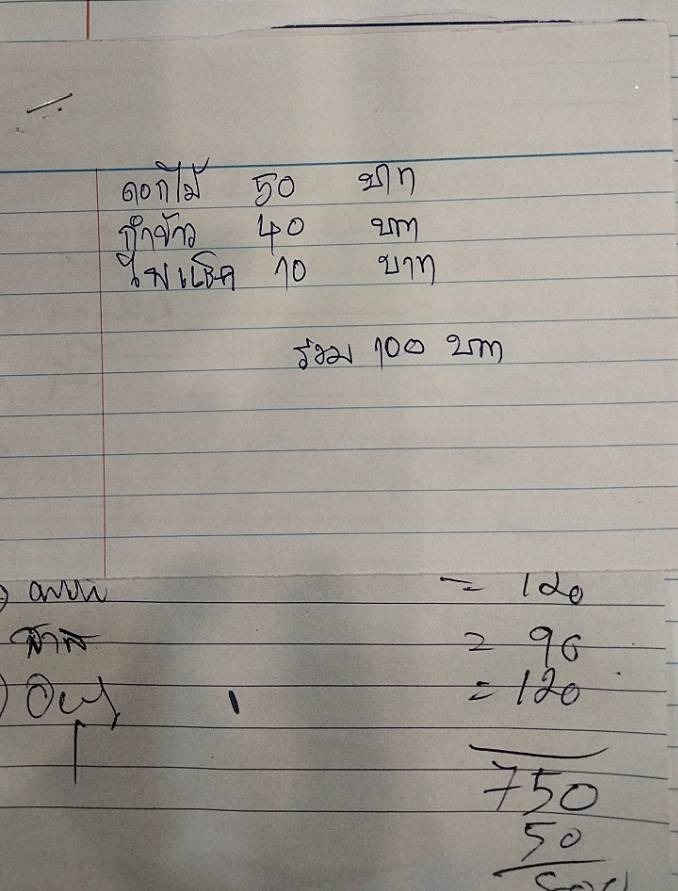 ดอกไม้ 50 บาท
กำข้าว 40 บาท
ไฟแช็ค 10 บาท
รวม 100 บาท
= 120
= 96
= 120
750
50